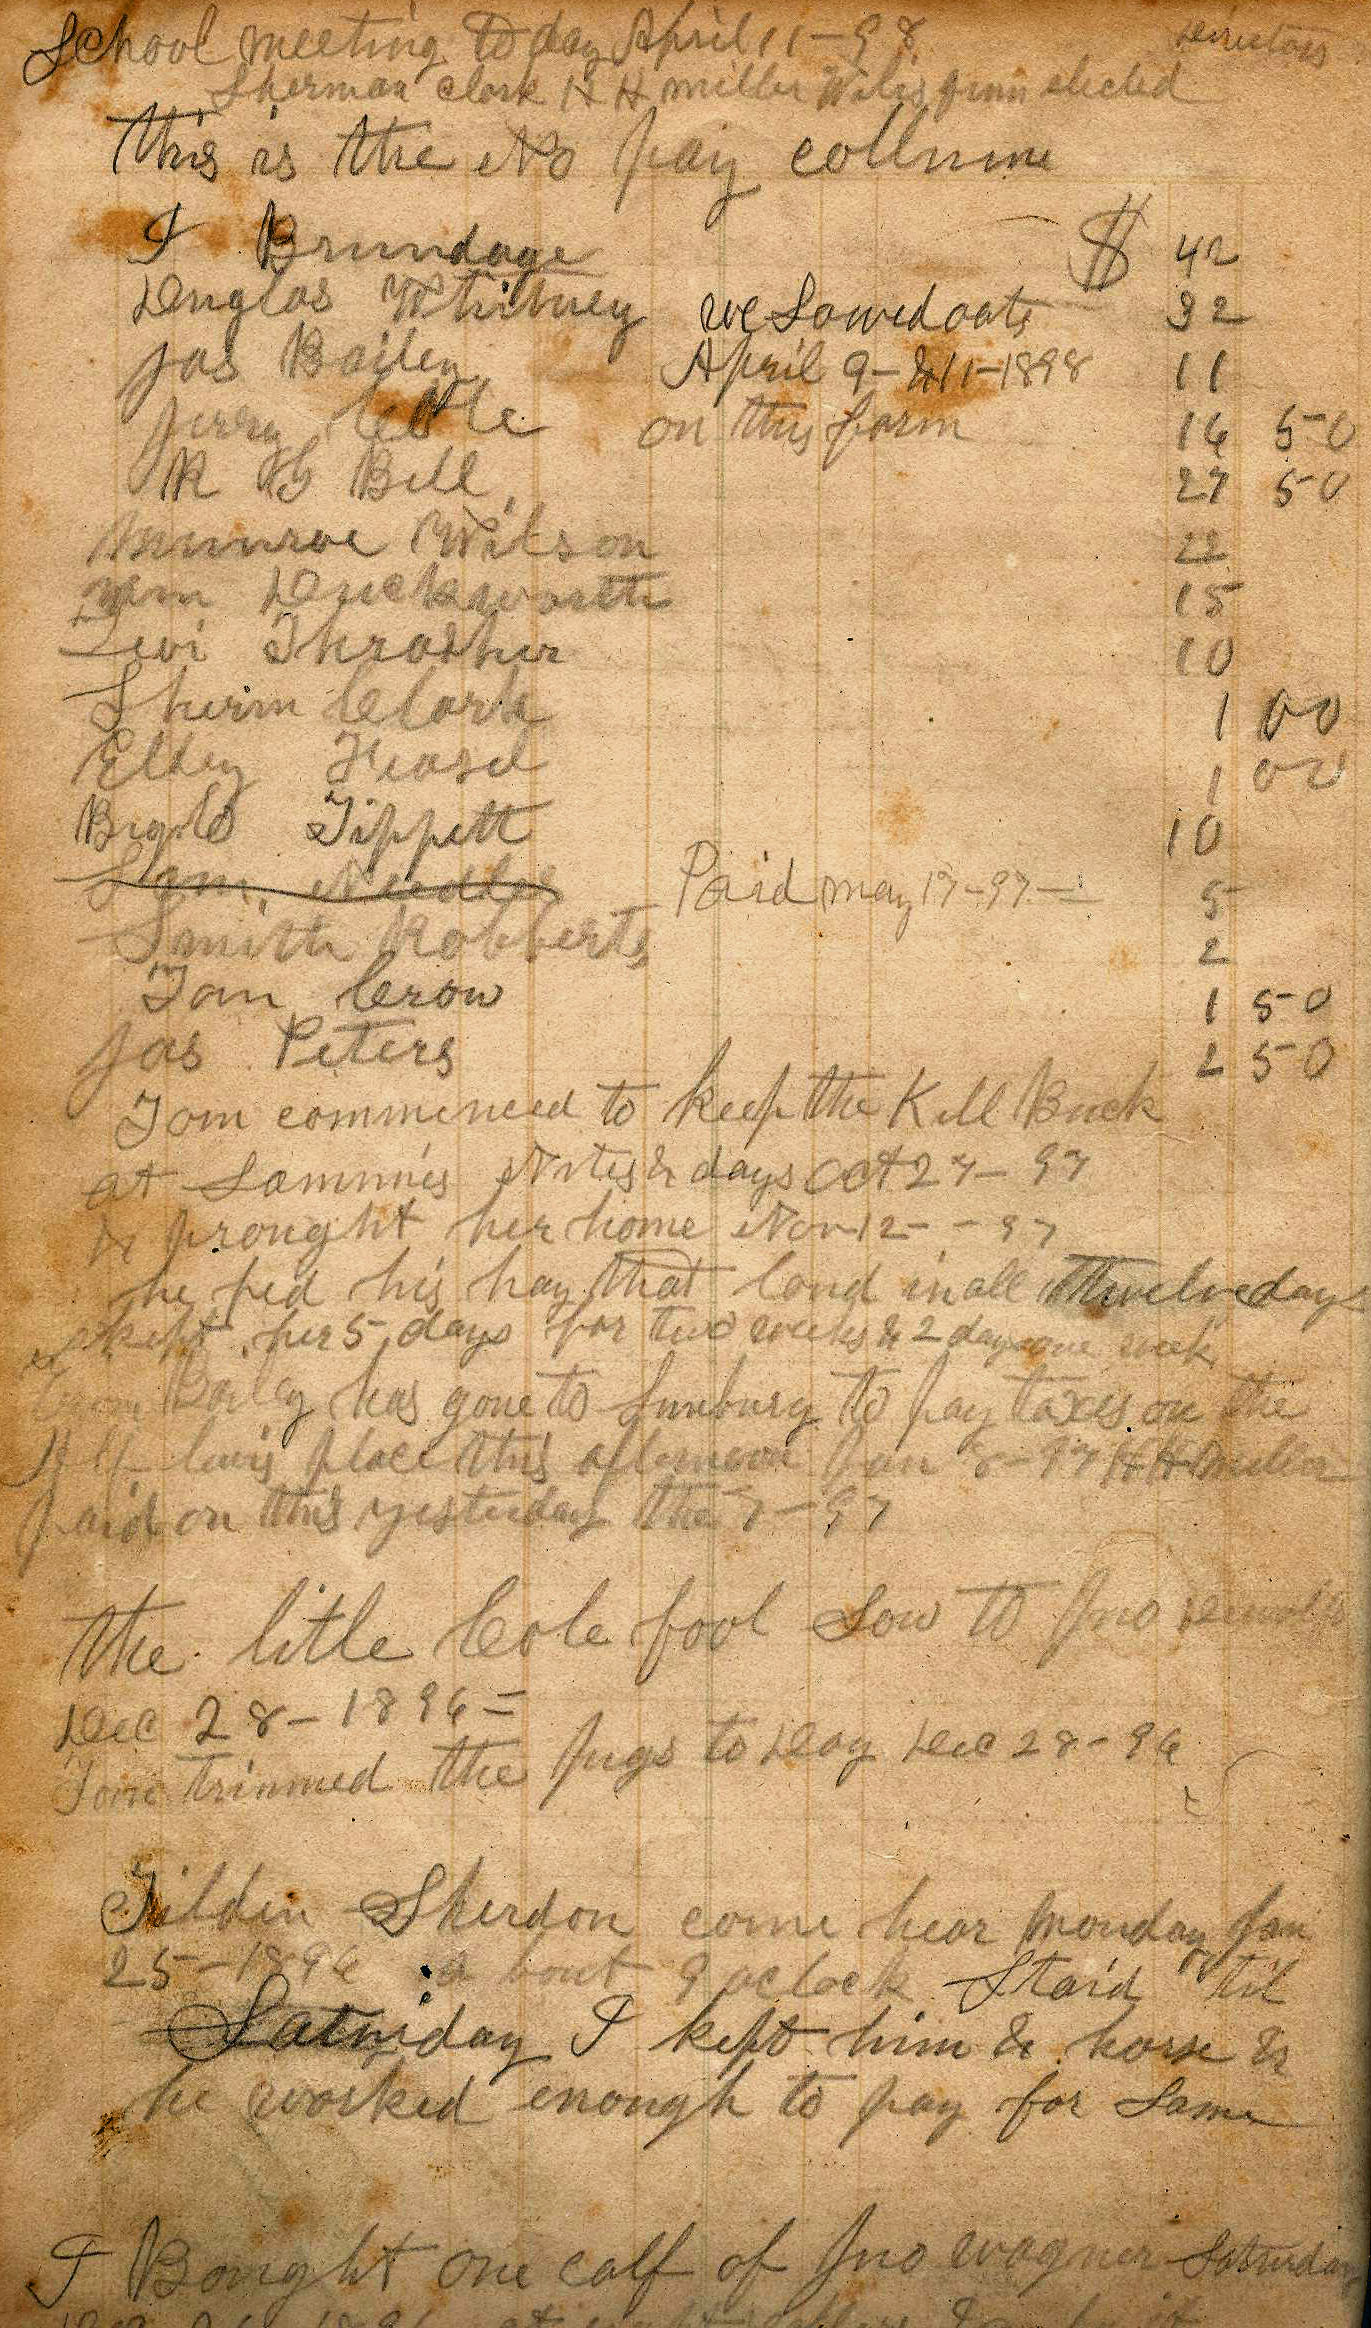 School meeting To day April 11 - 98 Directors
Sherman Clark H H Miller elected
this is the No pay collumn
I Brundage $ 42
Duglas Whitney we Sowed oats 32
Jas Bailey April 9 - & 11 - 1898 11
Jerry Cole on this farm 16 50
R G Bell 27 50
Munroe Wilson 22
Wm Duckworth 15
Levi Thrasher 10
Sherm Clark 1 00
Elzy 1 00
Tippett 10
Sam Needles Paid may 17 - 97 - 5
Smith Robberts 2
Tom Crow 1 50
Jas Peters 2 50
Tom commenced to keep the Kill Buck
at Sammies Nites & days Oct 27 - 97
& prought her home Nov 12 - - 97
he fed his hay that in all Thwelve days
kept her 5 days for two weeks & 2 days one week
Baily has gone to Sunbury to pay taxes on the
place this afternoon Jan 8 - 97 H H Miller
paid on this yesterday the 7 - 97
the litle Cole fool Sow to Jno
Dec 28 - 1896 =
Tom trimmed the pugs to Day Dec 28 - 96
Tilden Sherdon come hear Monday Jan
25 - 1896 a bout 9 oclock Staid til
Saturday I kept him & horse &
he worked enough to pay for Same
I Bought one calf of Jno Wagner Saturday